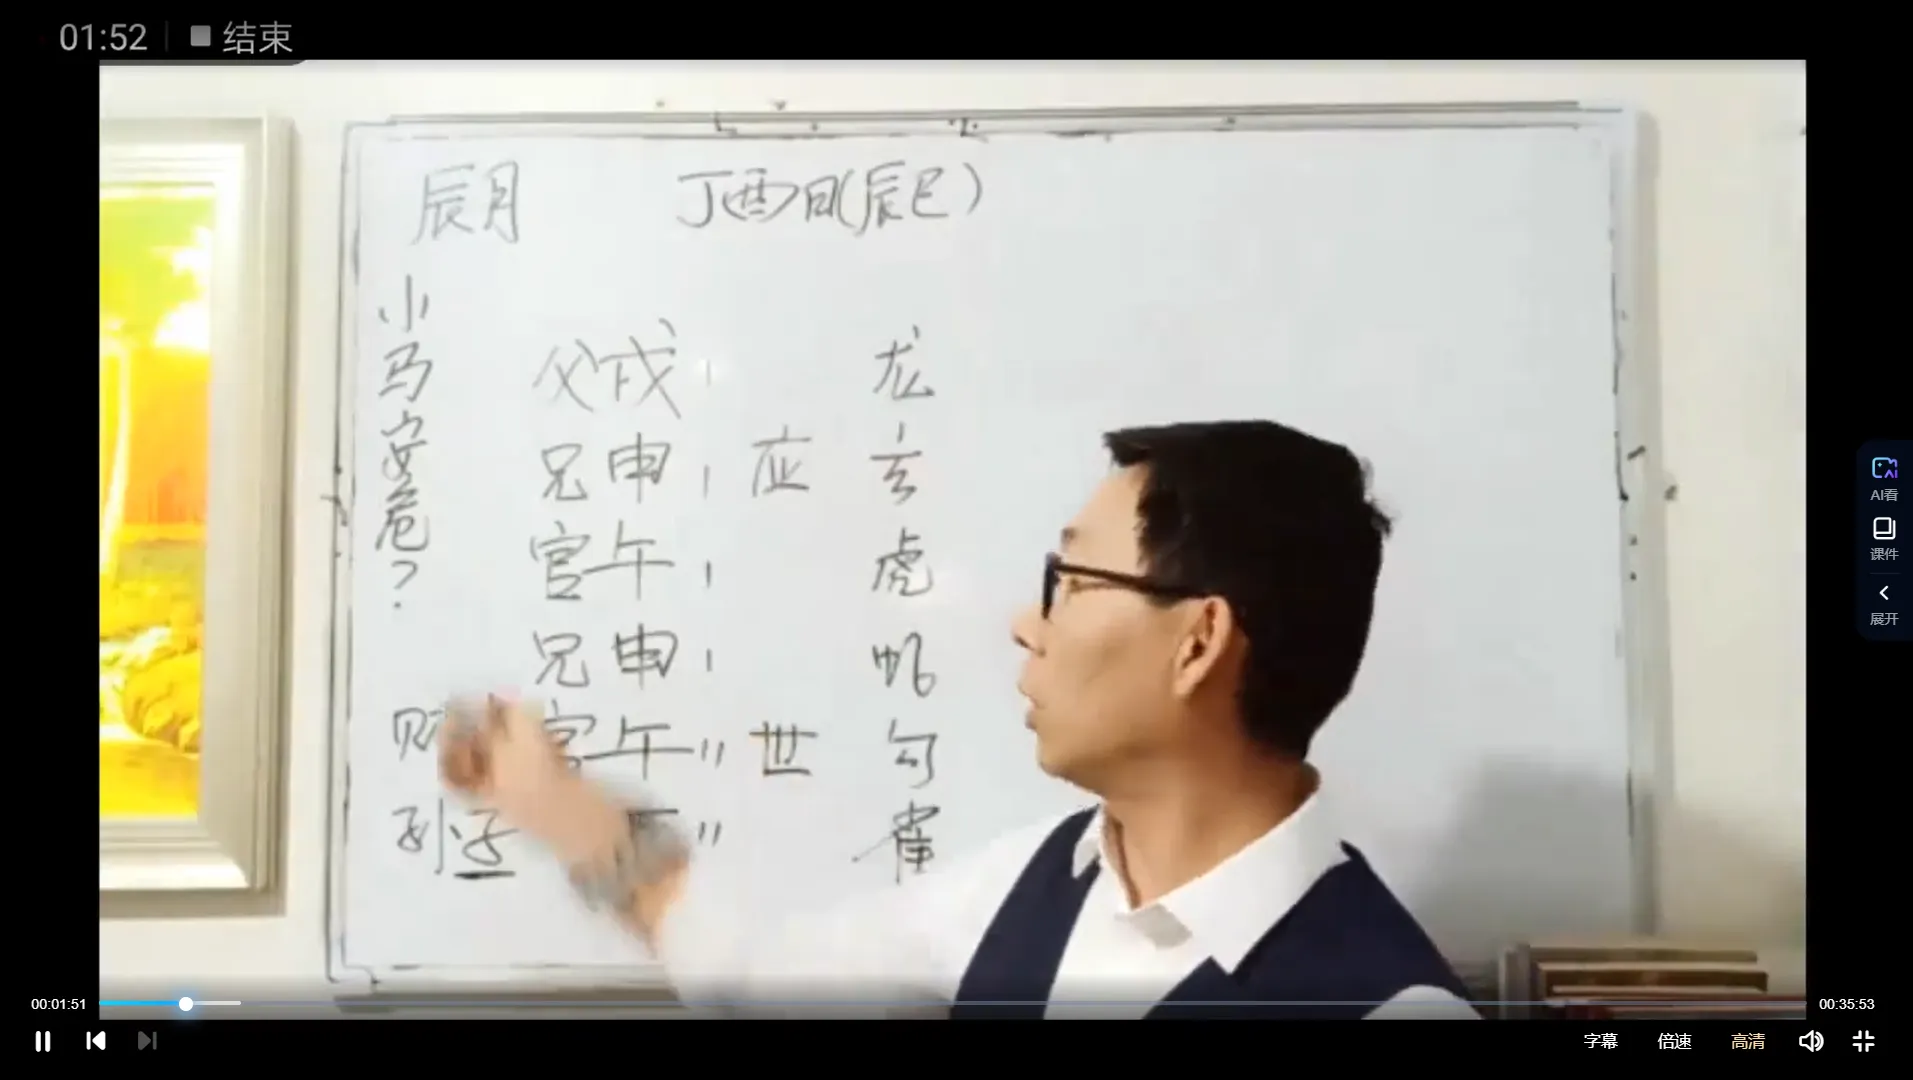 01:52 结束
辰月 丁酉日(辰巳)
小马安危?
父戌 龙
兄申 应 玄
官午 虎
兄申
官午 世 勾
孙子 雀
00:01:51
00:35:53
字幕 倍速 高清
AI看
课件
展开